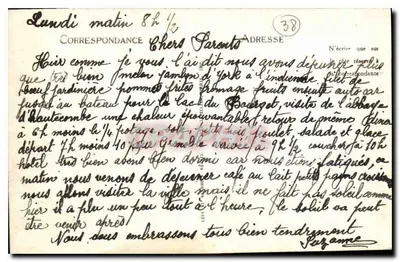 Lundi matin 8h 1/2
38
CORRESPONDANCE Chers Parents ADRESSE
N'écrire que sur
Hier comme je vous l'ai dit nous avons déjeuner plus
que très bien melon jambon d'York à l'indienne filet de
boeuf jardinière pommes frites fromage fruits ensuite auto car
jusqu'au bateau pour le lac du Bourget, visite de l'abbaye
d'hautecombe une chaleur épouvantable retour de même diner
à 6h moins le 1/4 potage sol poulet, salade et glace
départ 7h moins 40 pour Grenoble arrivée à 9h 1/2 coucher à 10h
hotel très bien avons bien dormi car nous étions fatigués, ce
matin nous venons de déjeuner café au lait petits pains
nous allons visiter la ville mais il ne fait pas soleil comme
hier il a plu un peu tout à l'heure, le soleil va peut
être venir après
Nous vous embrassons tous bien tendrement
Suzanne